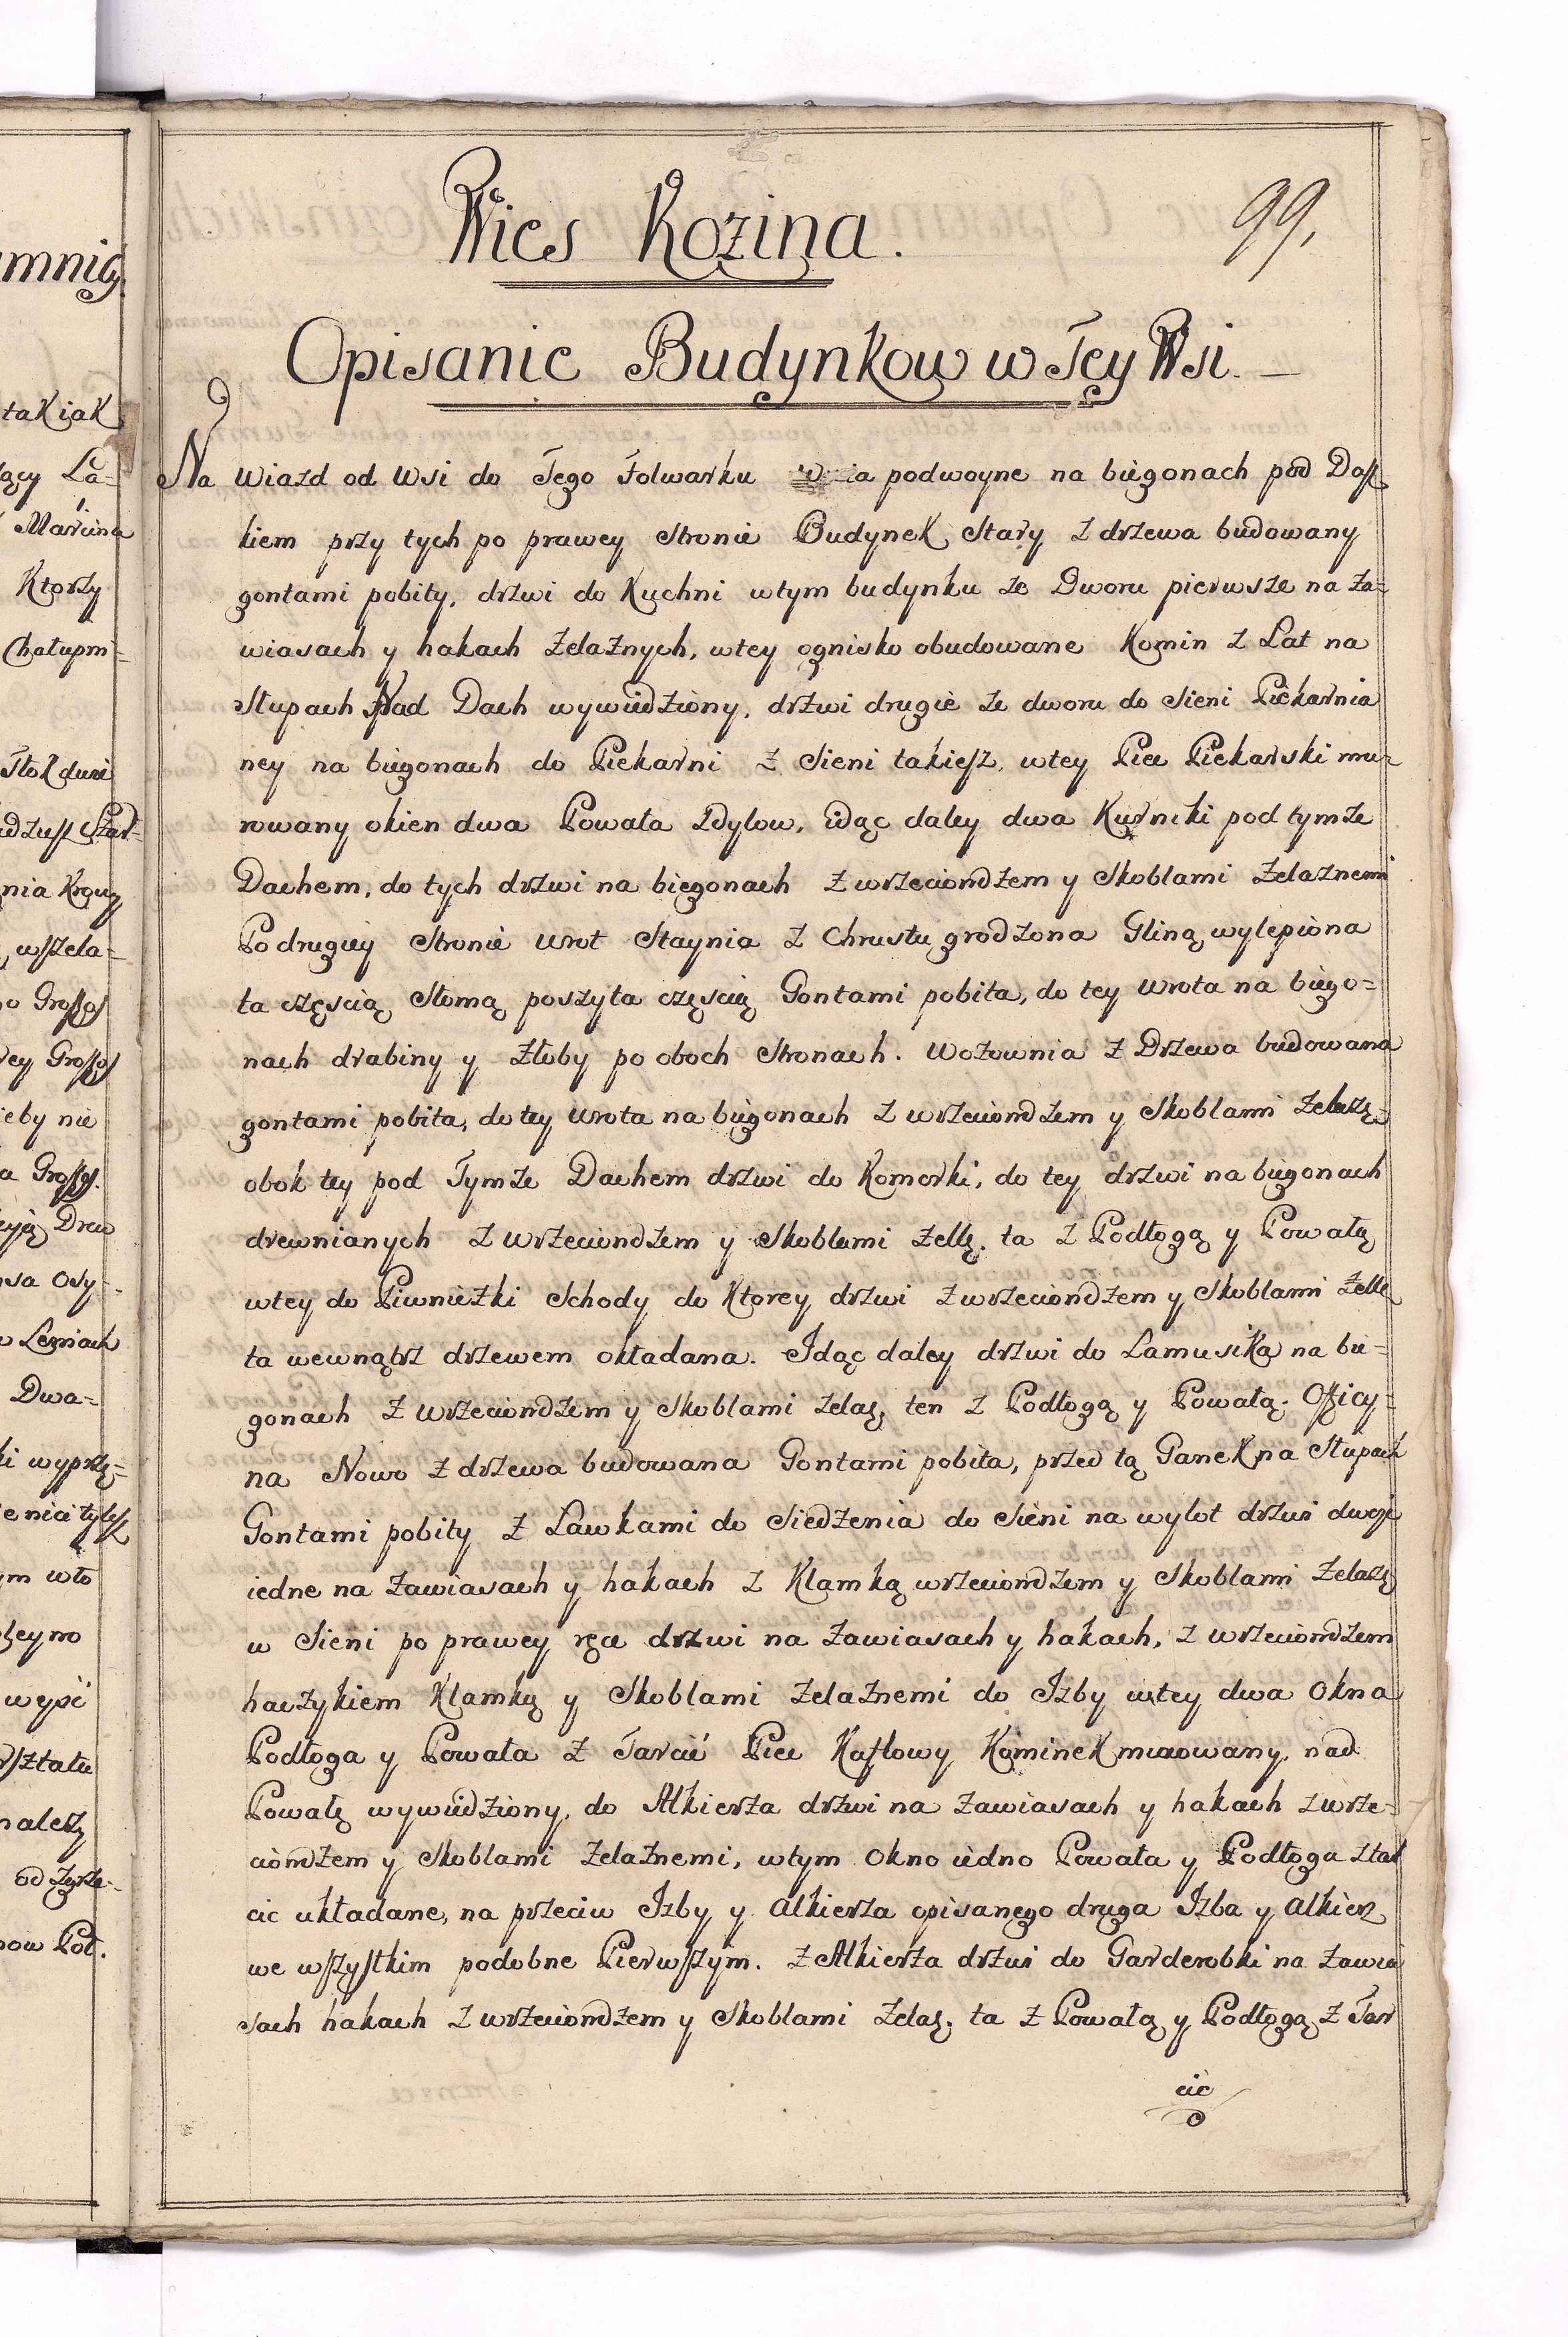 Wies Kozina.
99,
Opisanie Budynkow w Tey Wsi.
Na Wiazd od Wsi do Tego Folwarku podwoyne na biegonach pod Dasz
kiem przy tych po prawey Stronie Budynek Stary z drzewa budowany
gontami pobity, drzwi do Kuchni wtym budynku ze Dworu pierwsze na za=
wiasach y hakach zelaznych, wtey ognisko obudowane Komin z Lat na
Słupach Nad Dach wywiedziony, drzwi drugie ze dworu do Sieni Piekarnia
ney na biegonach do Piekarni z Sieni takiesz, wtey Piec Piekarski mu=
rowany okien dwa Powała zdylow, idąc daley dwa Kurniki pod tymze
Dachem, do tych drzwi na biegonach z wrzeciondzem y Skoblami zelaznemi
Po drugiey Stronie wrot Staynia z Chrustu grodzona Gliną wylepiona
ta częscią Słomą poszyta częscią Gontami pobita, do tey wrota na biego=
nach drabiny y złoby po oboch Stronach. Wozownia z Drzewa budowana
gontami pobita, do tey wrota na biegonach z wrzeciondzem y Skoblami zelazę.
obok tey pod Tymze Dachem drzwi do Komorki, do tey drzwi na biegonach
drewnianych z wrzeciondzem y Skoblami zellę. ta z Podłogą y Powałą
wtey do Piwniczki Schody do Ktorey drzwi z wrzeciondzem y Skoblami zellę
ta wewnątrz drzewem okładana. Idąc daley drzwi do Lamusika na bie=
gonach z wrzeciondzem y Skoblami zelaz, ten z Podłogą y Powałą. Oficy=
na Nowo z drzewa budowana Gontami pobita, przed tą Ganek na Słupach
Gontami pobity z Ławkami do Siedzenia do Sieni na wylot drzwi dwoje
iedne na zawiasach y hakach z Klamką wrzeciondzem y Skoblami zelazę
w Sieni po prawey ręce drzwi na zawiasach y hakach, z wrzeciondzem
haczykiem Klamką y Skoblami zelaznemi do Izby wtey dwa Okna
Podłoga y Powała z Tarcic Piec Kaflowy Kominek murowany, nad
Powałę wywiedziony, do Alkierza drzwi na zawiasach y hakach z wrze=
ciondzem y Skoblami zelaznemi, wtym Okno iedno Powała y Podłoga z tar
cic układane, na przeciw Izby y Alkierza opisanego druga Izba y Alkierz
we wszystkim podobne Pierwszym. z Alkierza drzwi do Garderobki na zawia
sach hakach z wrzeciondzem y Skoblami zelaz. ta z Powałą y Podłogą z Tar
cic